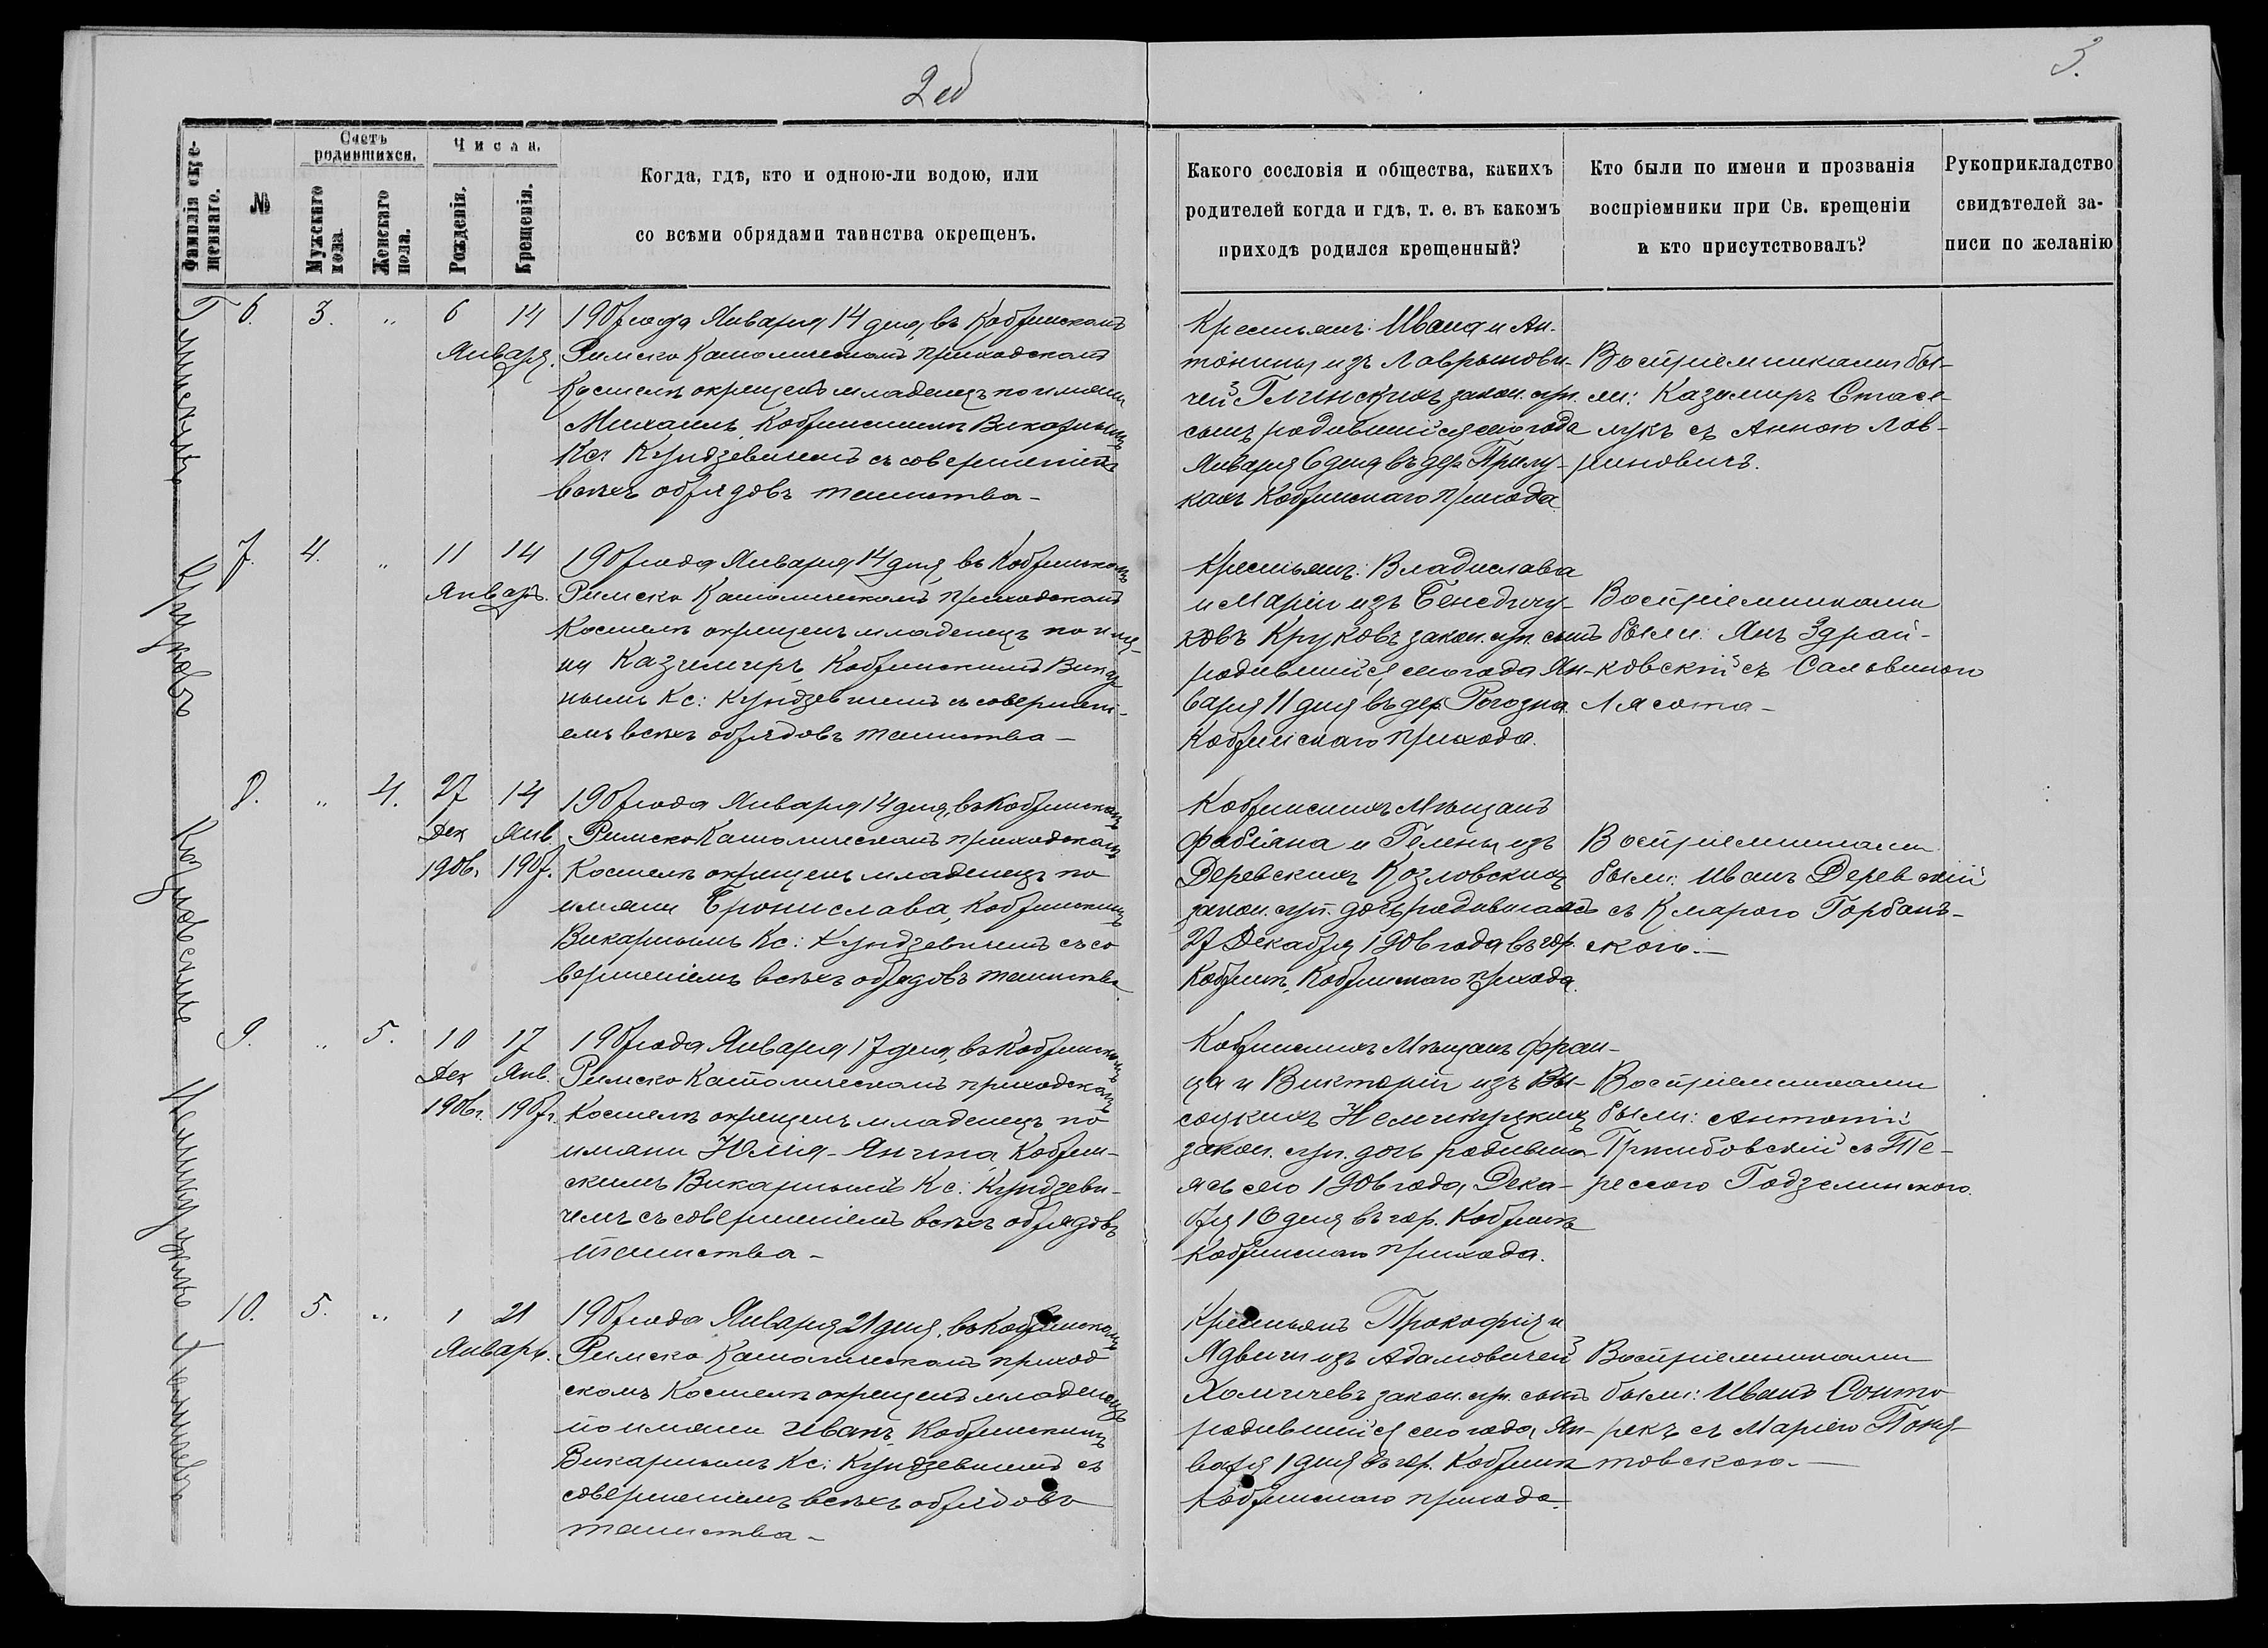 2об
3.
Фамилія свя-
щеннаго.
№
Счетъ
родившихся.
Мужскаго
пола.
Женскаго
пола.
Числа.
Рожденія.
Крещенія.
Когда, гдѣ, кто и одною-ли водою, или
со всѣми обрядами таинства окрещенъ.
Какого сословія и общества, какихъ
родителей когда и гдѣ, т. е. въ какомъ
приходѣ родился крещенный?
Кто были по имени и прозванія
воспріемники при Св. крещеніи
и кто присутствовалъ?
Рукоприкладство
свидѣтелей за-
писи по желанію
Глинскихъ
6. 3. " 6 14
Январь.
1907 года Января 14 дня, въ Кобринскомъ
Римско Католическомъ приходскомъ
Костелѣ окрещенъ младенецъ по имени
Михаилъ, Кобринскимъ Викарнымъ
Кс: Кундзевичемъ съ совершеніемъ
всѣхъ обрядовъ таинства-
Крестьянъ: Ивана и Ан-
тонины изъ Лаврынови-
чей Глинскихъ закон. суп.
сынъ родившійся сего года
Января 6 дня въ дер. Прилу-
кахъ Кобринскаго прихода.
Воспріемниками бы-
ли: Казимиръ Стасе-
лукъ съ Анною Лав-
риновичъ.
Круковъ
7. 4. " 11 14
Январь.
1907 года Января 14 дня, въ Кобринскомъ
Римско Католическомъ приходскомъ
Костелѣ окрещенъ младенецъ по име-
ни Казимиръ, Кобринскимъ Викар
нымъ Кс: Кундзевичемъ съ совершені-
емъ всѣхъ обрядовъ таинства-
Крестьянъ: Владислава
и Маріи изъ Бенедичу-
ковъ Круковъ закон. суп. сынъ
родившійся сего года Ян-
варя 11 дня въ дер. Рогозна
Кобринскаго прихода.
Воспріемниками
были: Янъ Здрай-
ковскій съ Сальвиною
Лясота-
Козловскихъ
8. " 4. 27 14
Дек Янв.
1906г. 1907г.
1907 года Января 14 дня, въ Кобринскомъ
Римско Католическомъ приходскомъ
Костелѣ окрещенъ младенецъ по
имени Бронислава, Кобринскимъ
Викарнымъ Кс: Кундзевичемъ съ со
вершеніемъ всѣхъ обрядовъ таинства.
Кобринскихъ Мѣщанъ
Фабіана и Гелены изъ
Деревскихъ Козловскихъ
закон. суп. дочь родившаяся
27 Декабря 1906 года въ гор.
Кобринѣ, Кобринскаго прихода.
Воспріемниками
были: Иванъ Деревскій
съ Кларою Горбачъ-
скою.-
Немикуцкихъ
9. " 5. 10 17
Дек Янв.
1906г. 1907г.
1907 года Января 17 дня, въ Кобринскомъ
Римско Католическомъ приходскомъ
Костелѣ окрещенъ младенецъ по
имени Юлія-Янина, Кобрин-
скимъ Викарнымъ Кс: Кундзеви-
чемъ съ совершеніемъ всѣхъ обрядовъ
таинства-
Кобринскихъ Мѣщанъ Фран-
ца и Викторіи изъ Вы-
соцкихъ Немикуцкихъ
закон. суп. дочь родивша-
яся сего 1906 года, Дека-
бря 10 дня въ гор. Кобринѣ
Кобринскаго прихода.
Воспріемниками
были: Антоній
Гржибовскій съ Те-
рессою Годзелинскою.
Хомичевъ
10. 5. " 1 21
Январь.
1907 года Января 21 дня, въ Кобринскомъ
Римско Католическомъ приход
скомъ Костелѣ окрещенъ младенецъ
по имени Иванъ, Кобринскимъ
Викарнымъ Кс: Кундзевичемъ съ
совершеніемъ всѣхъ обрядовъ
таинства-
Крестьянъ Прокофія и
Ядвиги изъ Адамовичей
Хомичевъ закон. суп. сынъ
родившійся сего года, Ян-
варя 1 дня въ гор. Кобринѣ
Кобринскаго прихода.
Воспріемниками
были: Иванъ Сонто
рекъ съ Маріею Поня-
товскою.-